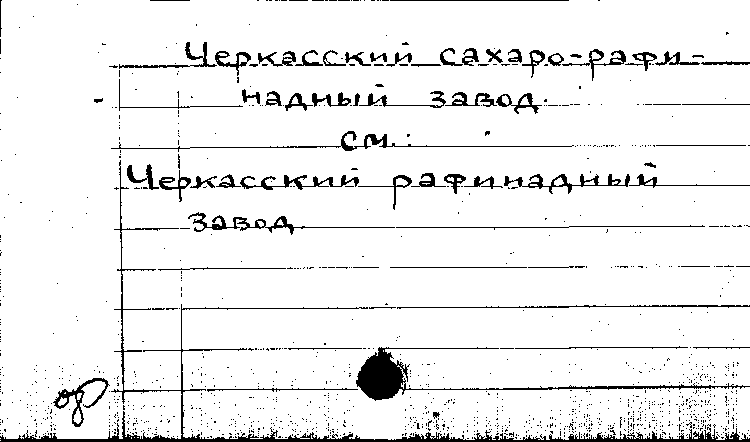 Черкасский сахаро-рафи-
надный завод.
см.:
Черкасский рафинадный
завод.
ор